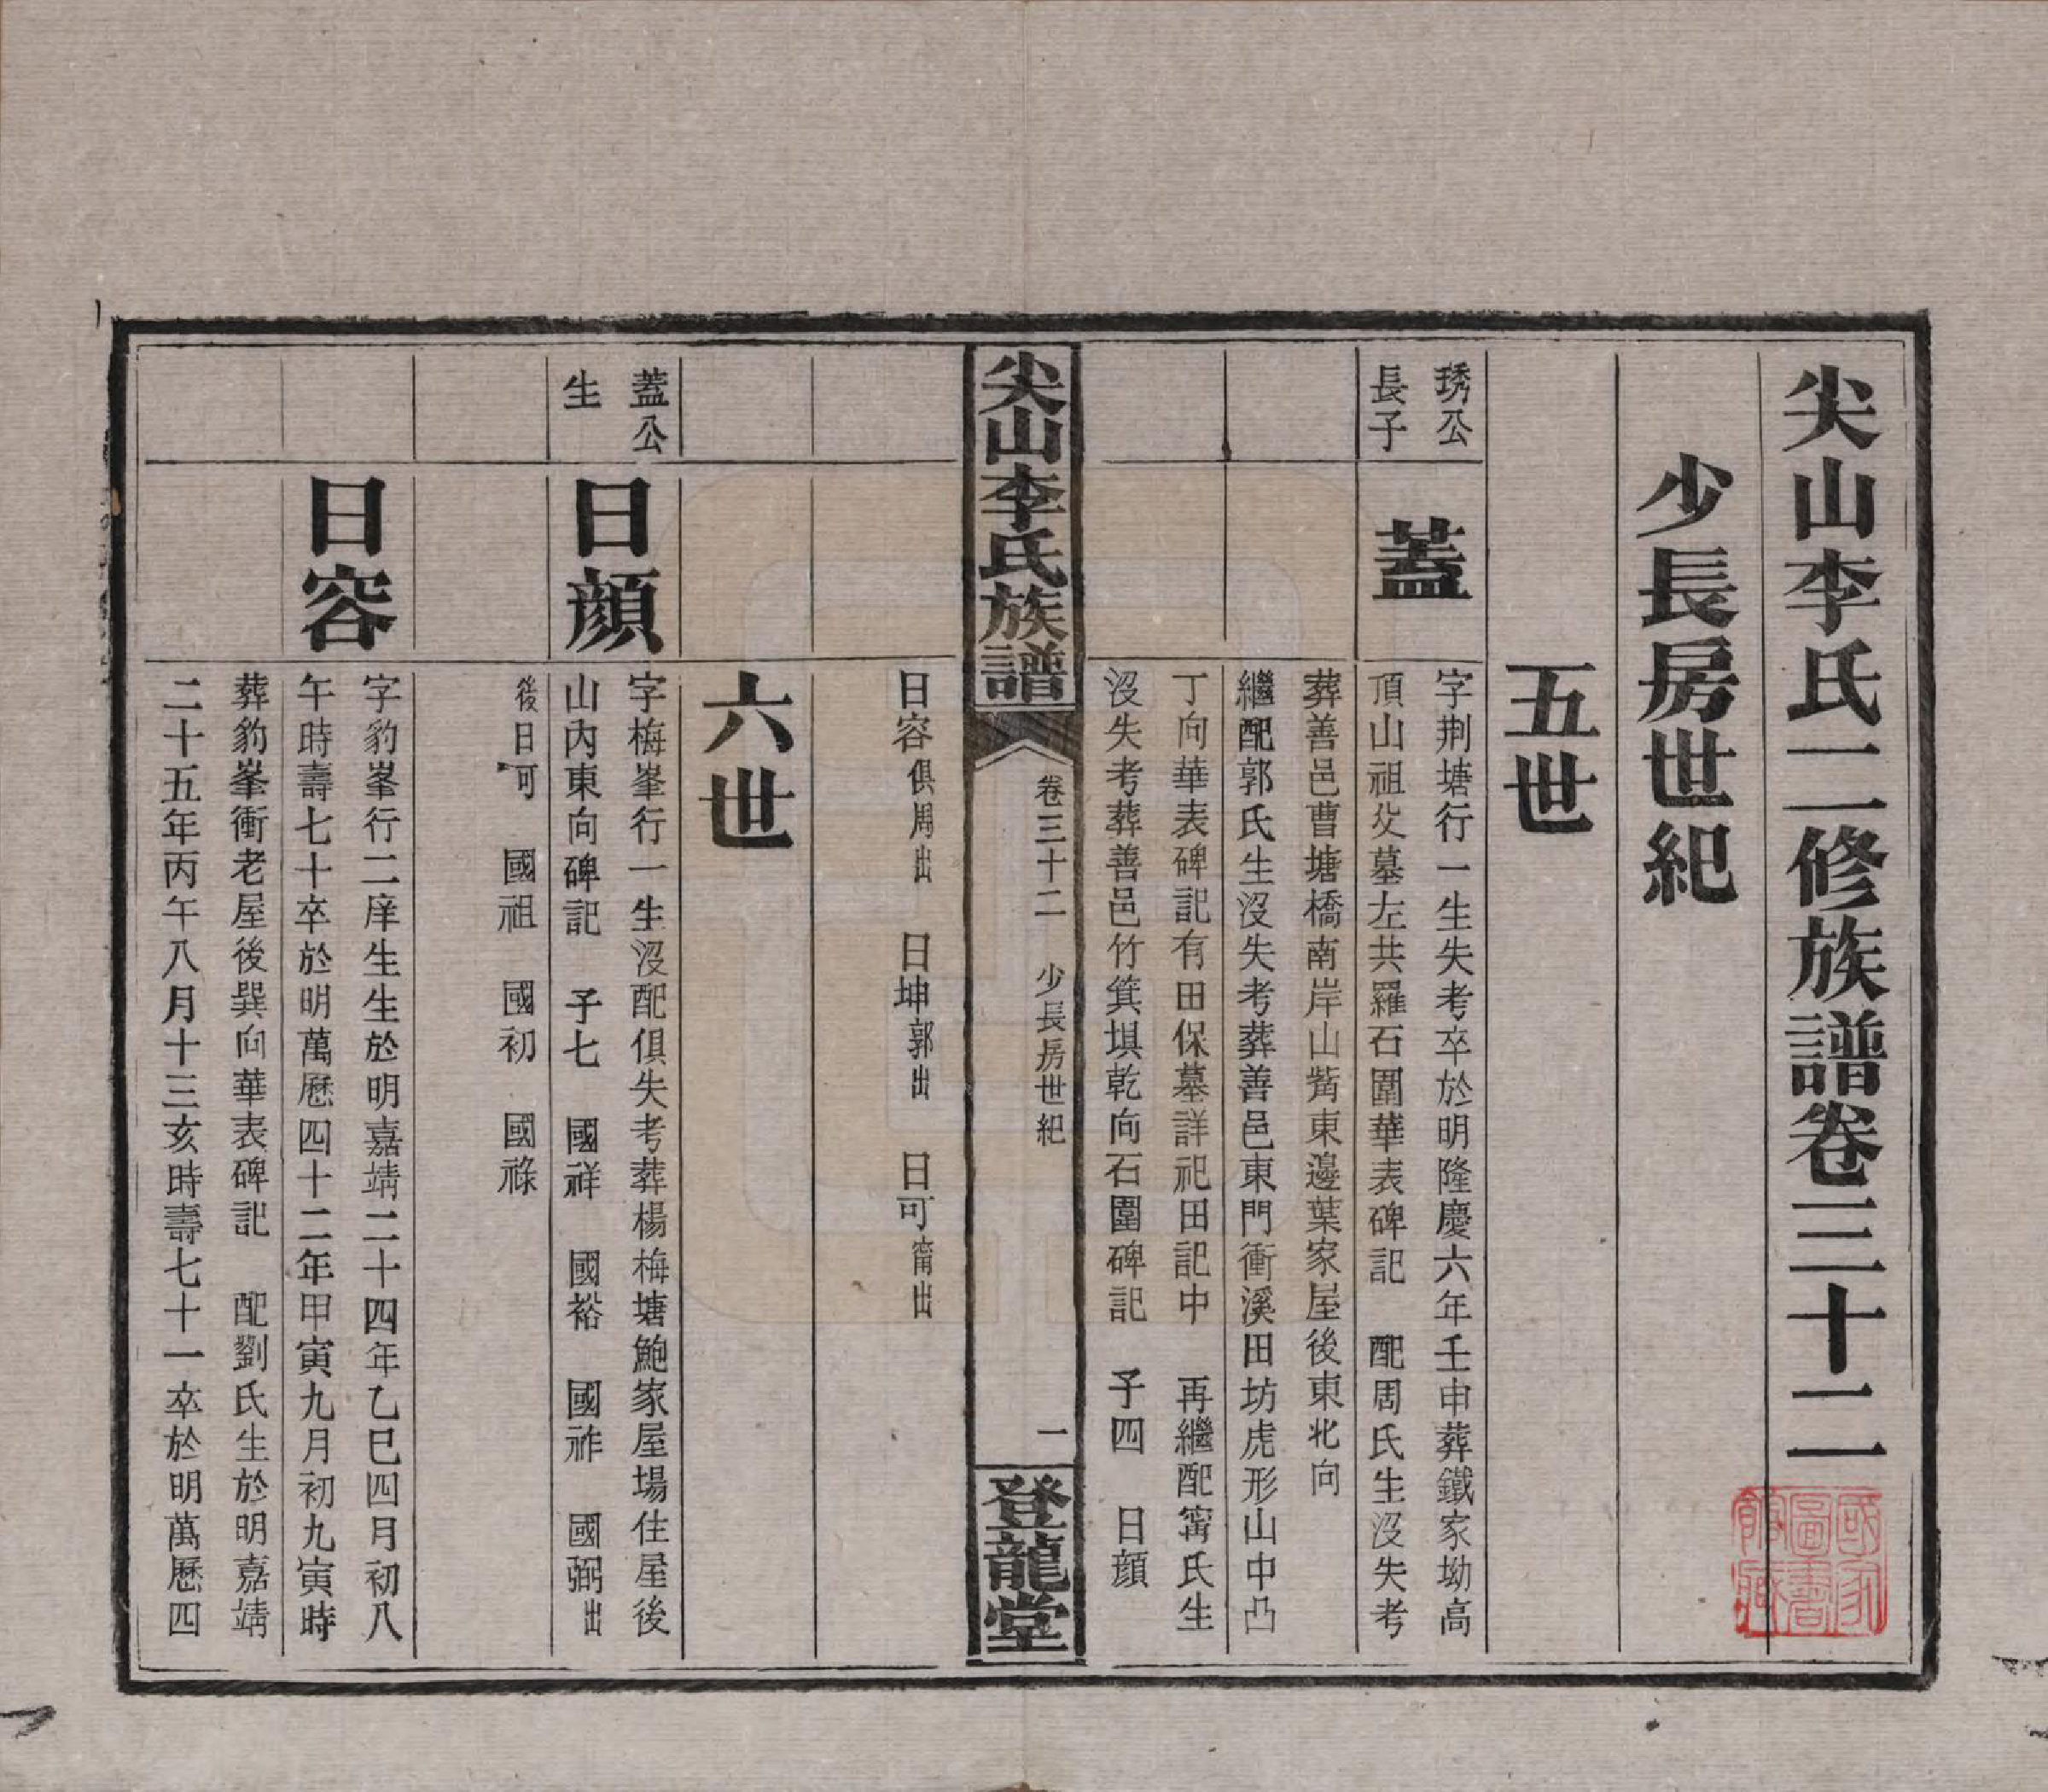 尖山李氏二修族譜卷三十二
少長房世紀
五世
琇公
長子
蓋
字荆塘行一生失考卒於明隆慶六年壬申葬鐵家坳高
頂山祖父墓左共羅石圍華表碑記　配周氏生沒失考
葬善邑曹塘橋南岸山觜東邊葉家屋後東北向
繼配郭氏生沒失考葬善邑東門衝溪田坊虎形山中凸
丁向華表碑記有田保墓詳祀田記中　再繼配甯氏生
沒失考葬善邑竹箕埧乾向石圍碑記　子四　日顔
尖山李氏族譜　卷三十二　少長房世紀　一　登龍堂
日容俱周出　日坤郭出　日可甯出
六世
蓋公
生
日顔
字梅峯行一生沒配俱失考葬楊梅塘鮑家屋場住屋後
山內東向碑記　子七　國祥　國裕　國祚　國弼出
後日可　國祖　國初　國祿
日容
字豹峯行二庠生生於明嘉靖二十四年乙巳四月初八
午時壽七十卒於明萬歷四十二年甲寅九月初九寅時
葬豹峯衝老屋後巽向華表碑記　配劉氏生於明嘉靖
二十五年丙午八月十三亥時壽七十一卒於明萬歷四
國家
圖書
館藏